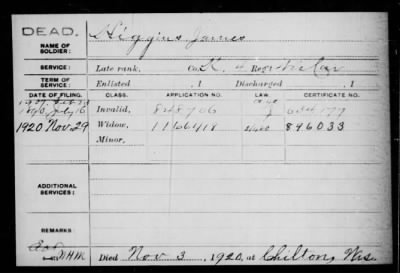 DEAD.
NAME OF SOLDIER:
Higgins, James
SERVICE:
Late rank, Co. K, 4 Reg't Wis Cav
TERM OF SERVICE:
Enlisted , 1 Discharged , 1
DATE OF FILING. CLASS. APPLICATION NO. LAW. CERTIFICATE NO.
Invalid, 848706 634177
1920 Nov. 29 Widow, 1166418 896033
Minor,
ADDITIONAL SERVICES:
REMARKS:
Died Nov 3, 1920, at Chilton, Wis.